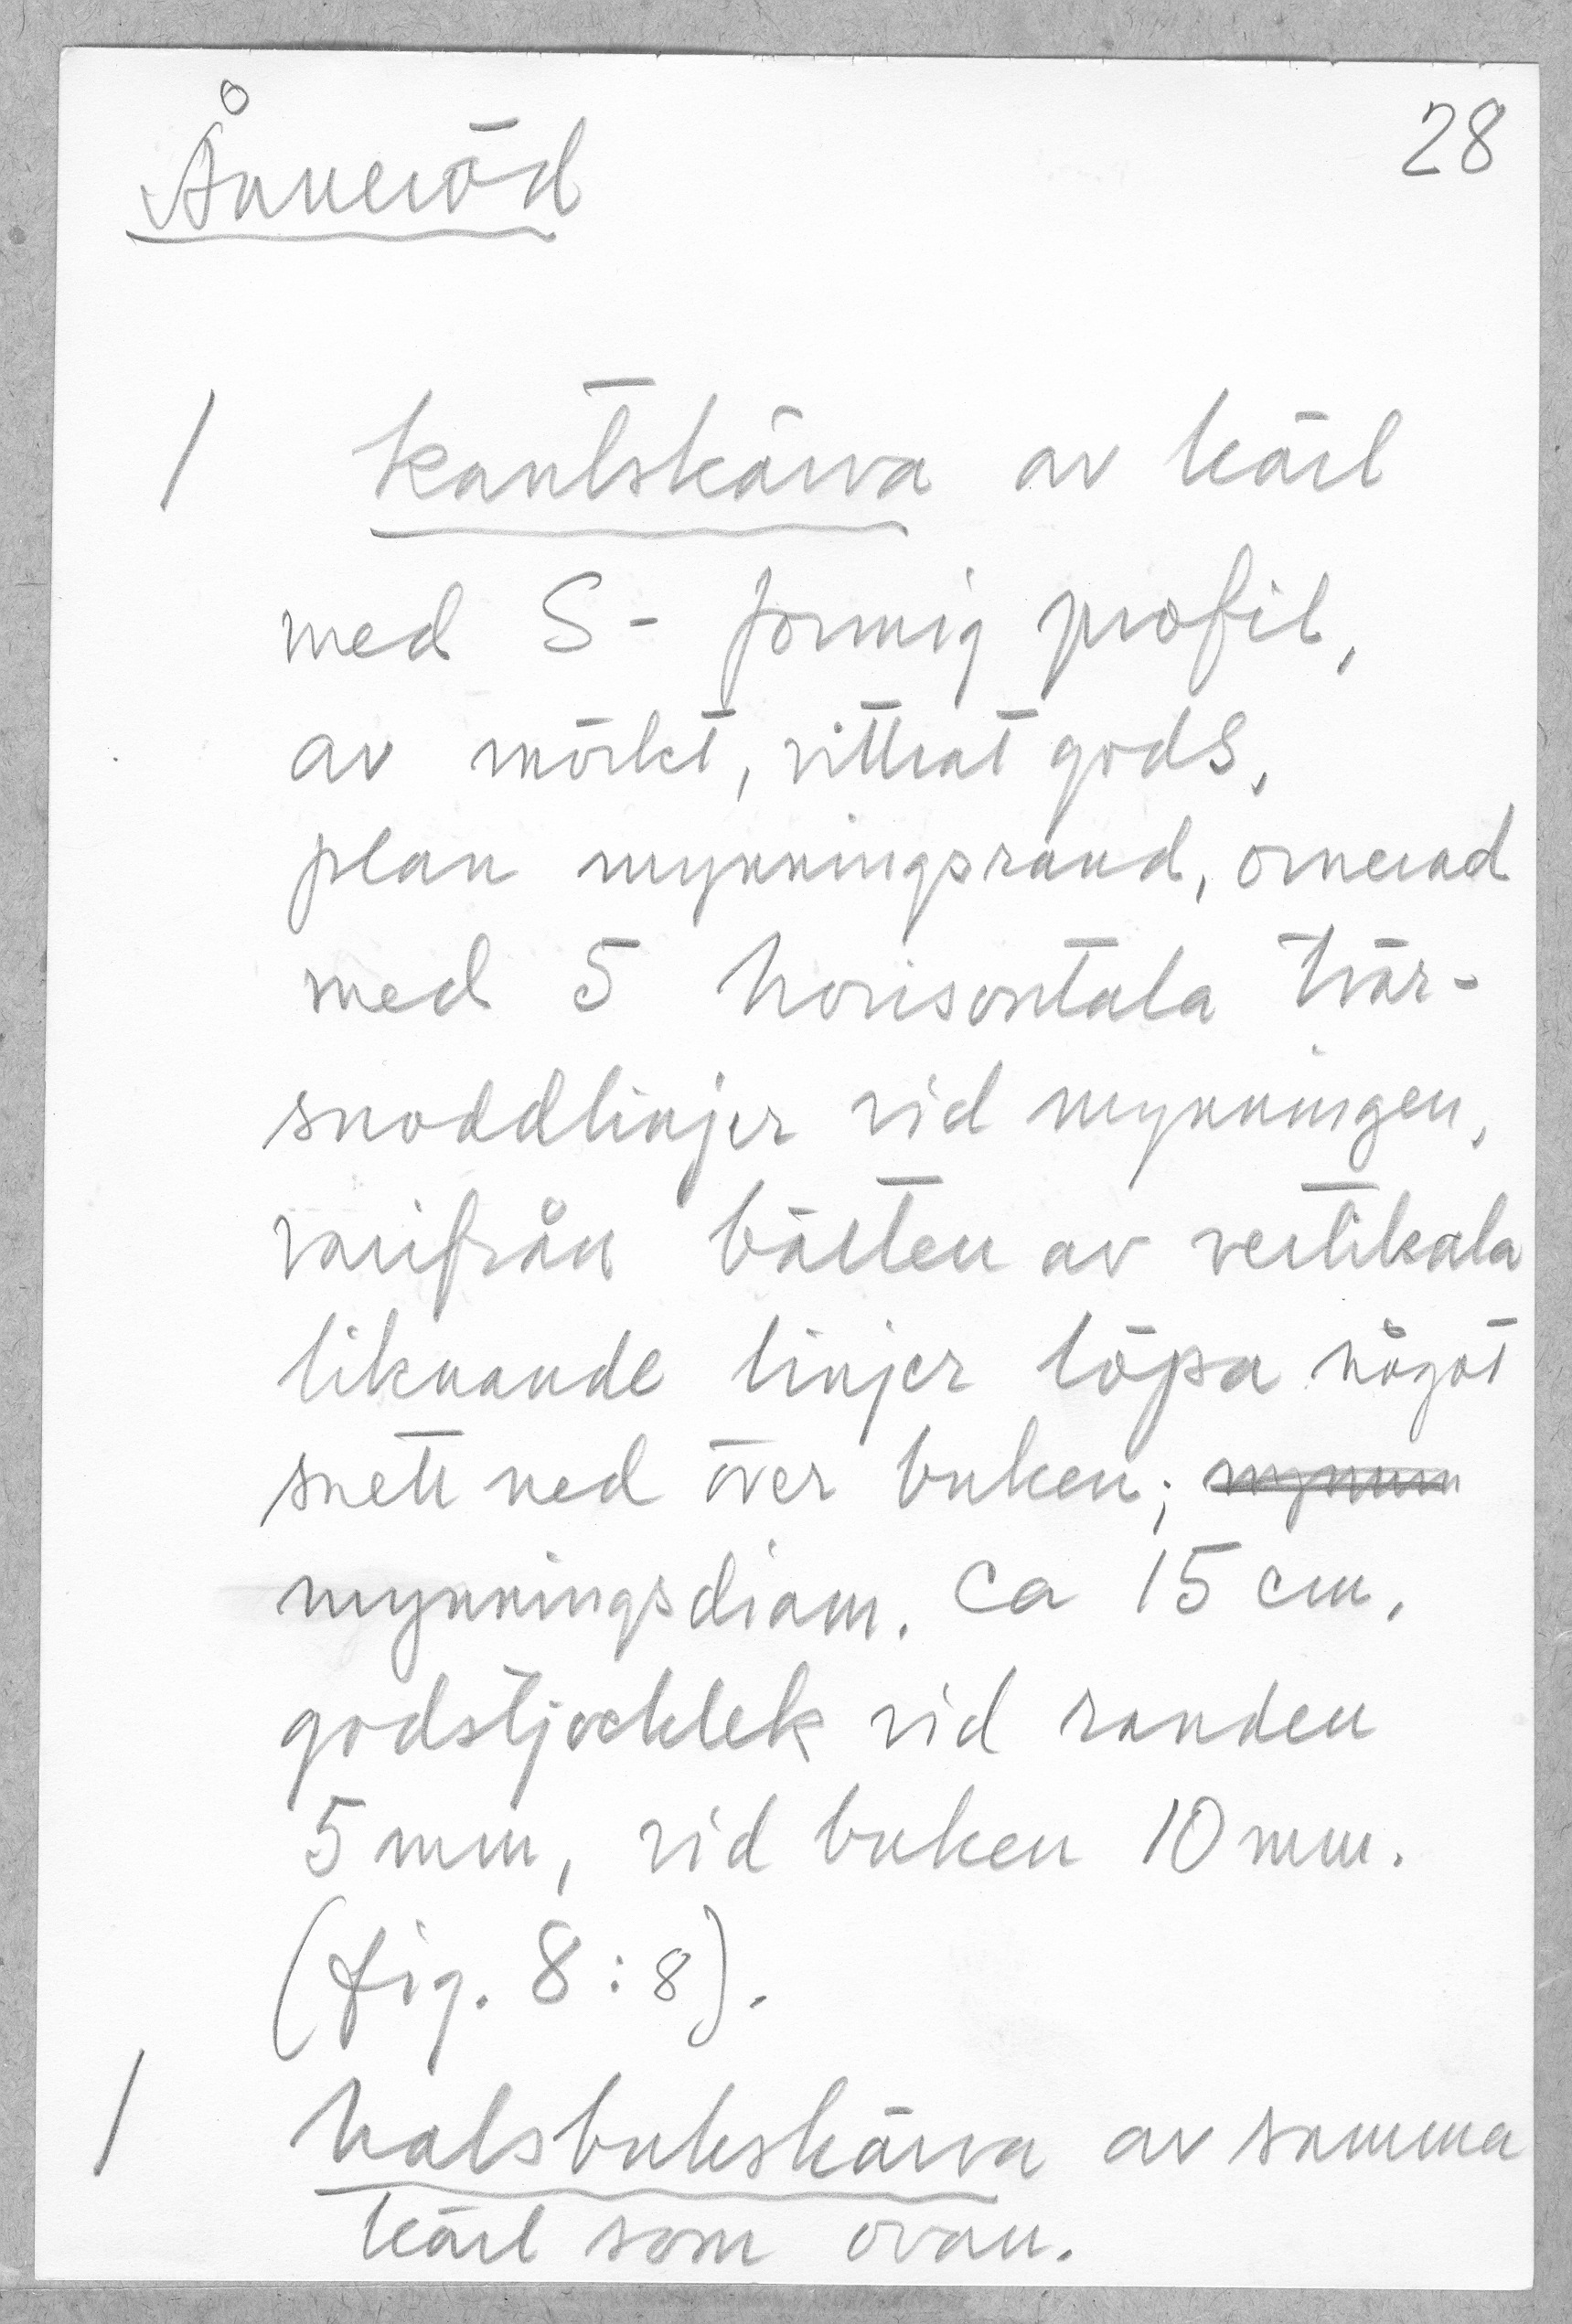 Ånneröd
28
1 kantskärva av kärl
med S- formig profil,
av mörkt, vittrat gods,
plan mynningsrand, ornerad
med 5 horisontala tvär-
snoddlinjer vid mynningen,
varifrån bälten av vertikala
liknande linjer löpa något
snett ned över buken; mynnin
mynningsdiam. ca 15 cm,
godstjocklek vid randen
5 mm, vid buken 10 mm.
(fig. 8:8).
1 halsbukskärva av samma
kärl som ovan.